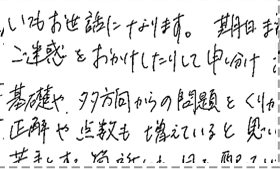 いつもお世話になります。 期日ま
ご迷惑をおかけしたりして申し分け
基礎や、多方向からの問題をくりか
正解や点数も増えていると思い